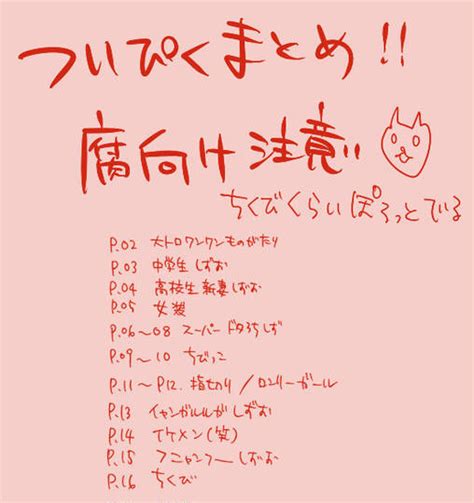 ついぴくまとめ!!
腐向け注意!!
ちくびくらいぽろっとでいる
P.02 大トロワンワンものがたり
P.03 中学生しずお
P.04 高校生新妻しずお
P.05 女装
P.06〜08 スーパードタろちしず
P.09〜10 ちびっこ
P.11〜P12. 指切り/ロンリーガール
P.13 イャンガルルガしずお
P.14 イケメン(笑)
P.15 フニャンフーしずお
P.16 ちくび